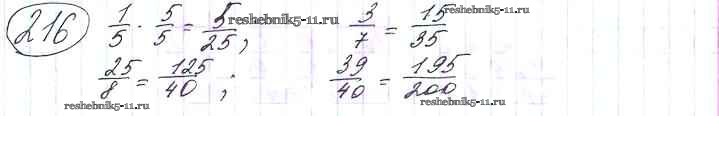 216 1/5 · 5/5 = 5/25, 3/7 = 15/35
25/8 = 125/40; 39/40 = 195/200
reshebnik5-11.ru reshebnik5-11.ru
reshebnik5-11.ru reshebnik5-11.ru